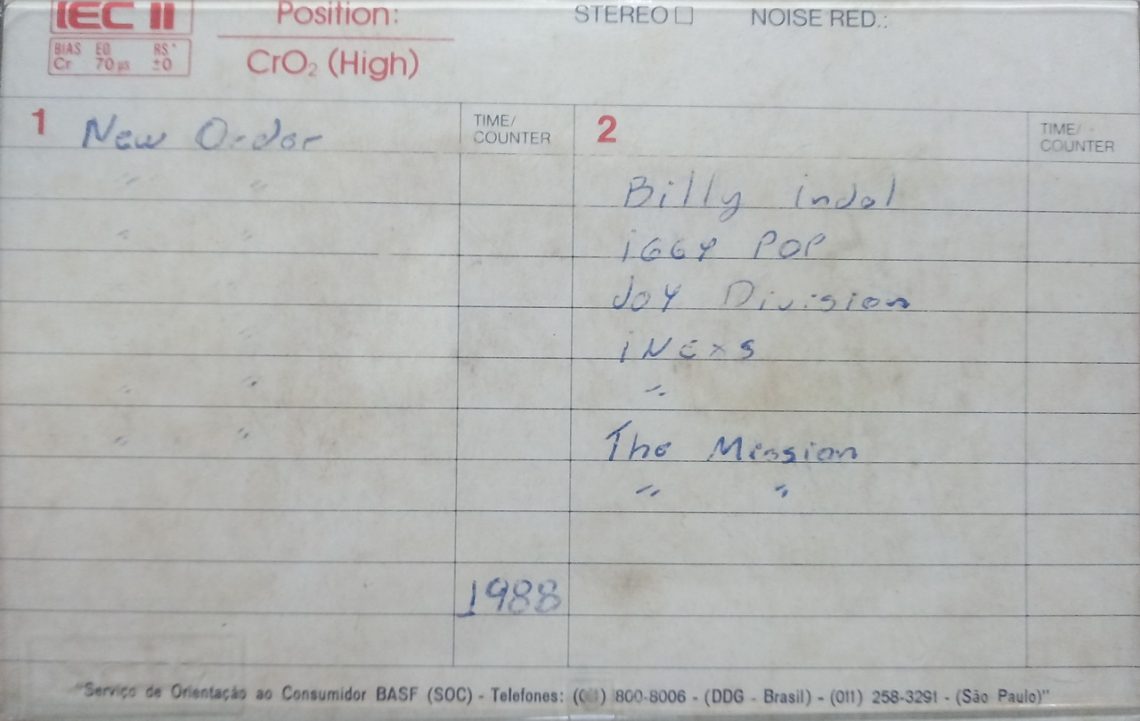 IEC II
BIAS EQ RS*
Cr 70 µs ±0
Position:
CrO₂ (High)
STEREO □ NOISE RED.:
1 New Order
TIME/
COUNTER
" "
" "
" "
" "
1988
2
TIME/
COUNTER
Billy indol
iGGY POP
JOY Division
iNExs
"
The Mission
" "
"Serviço de Orientação ao Consumidor BASF (SOC) - Telefones: ( ) 800-8006 - (DDG - Brasil) - (011) 258-3291 - (São Paulo)"